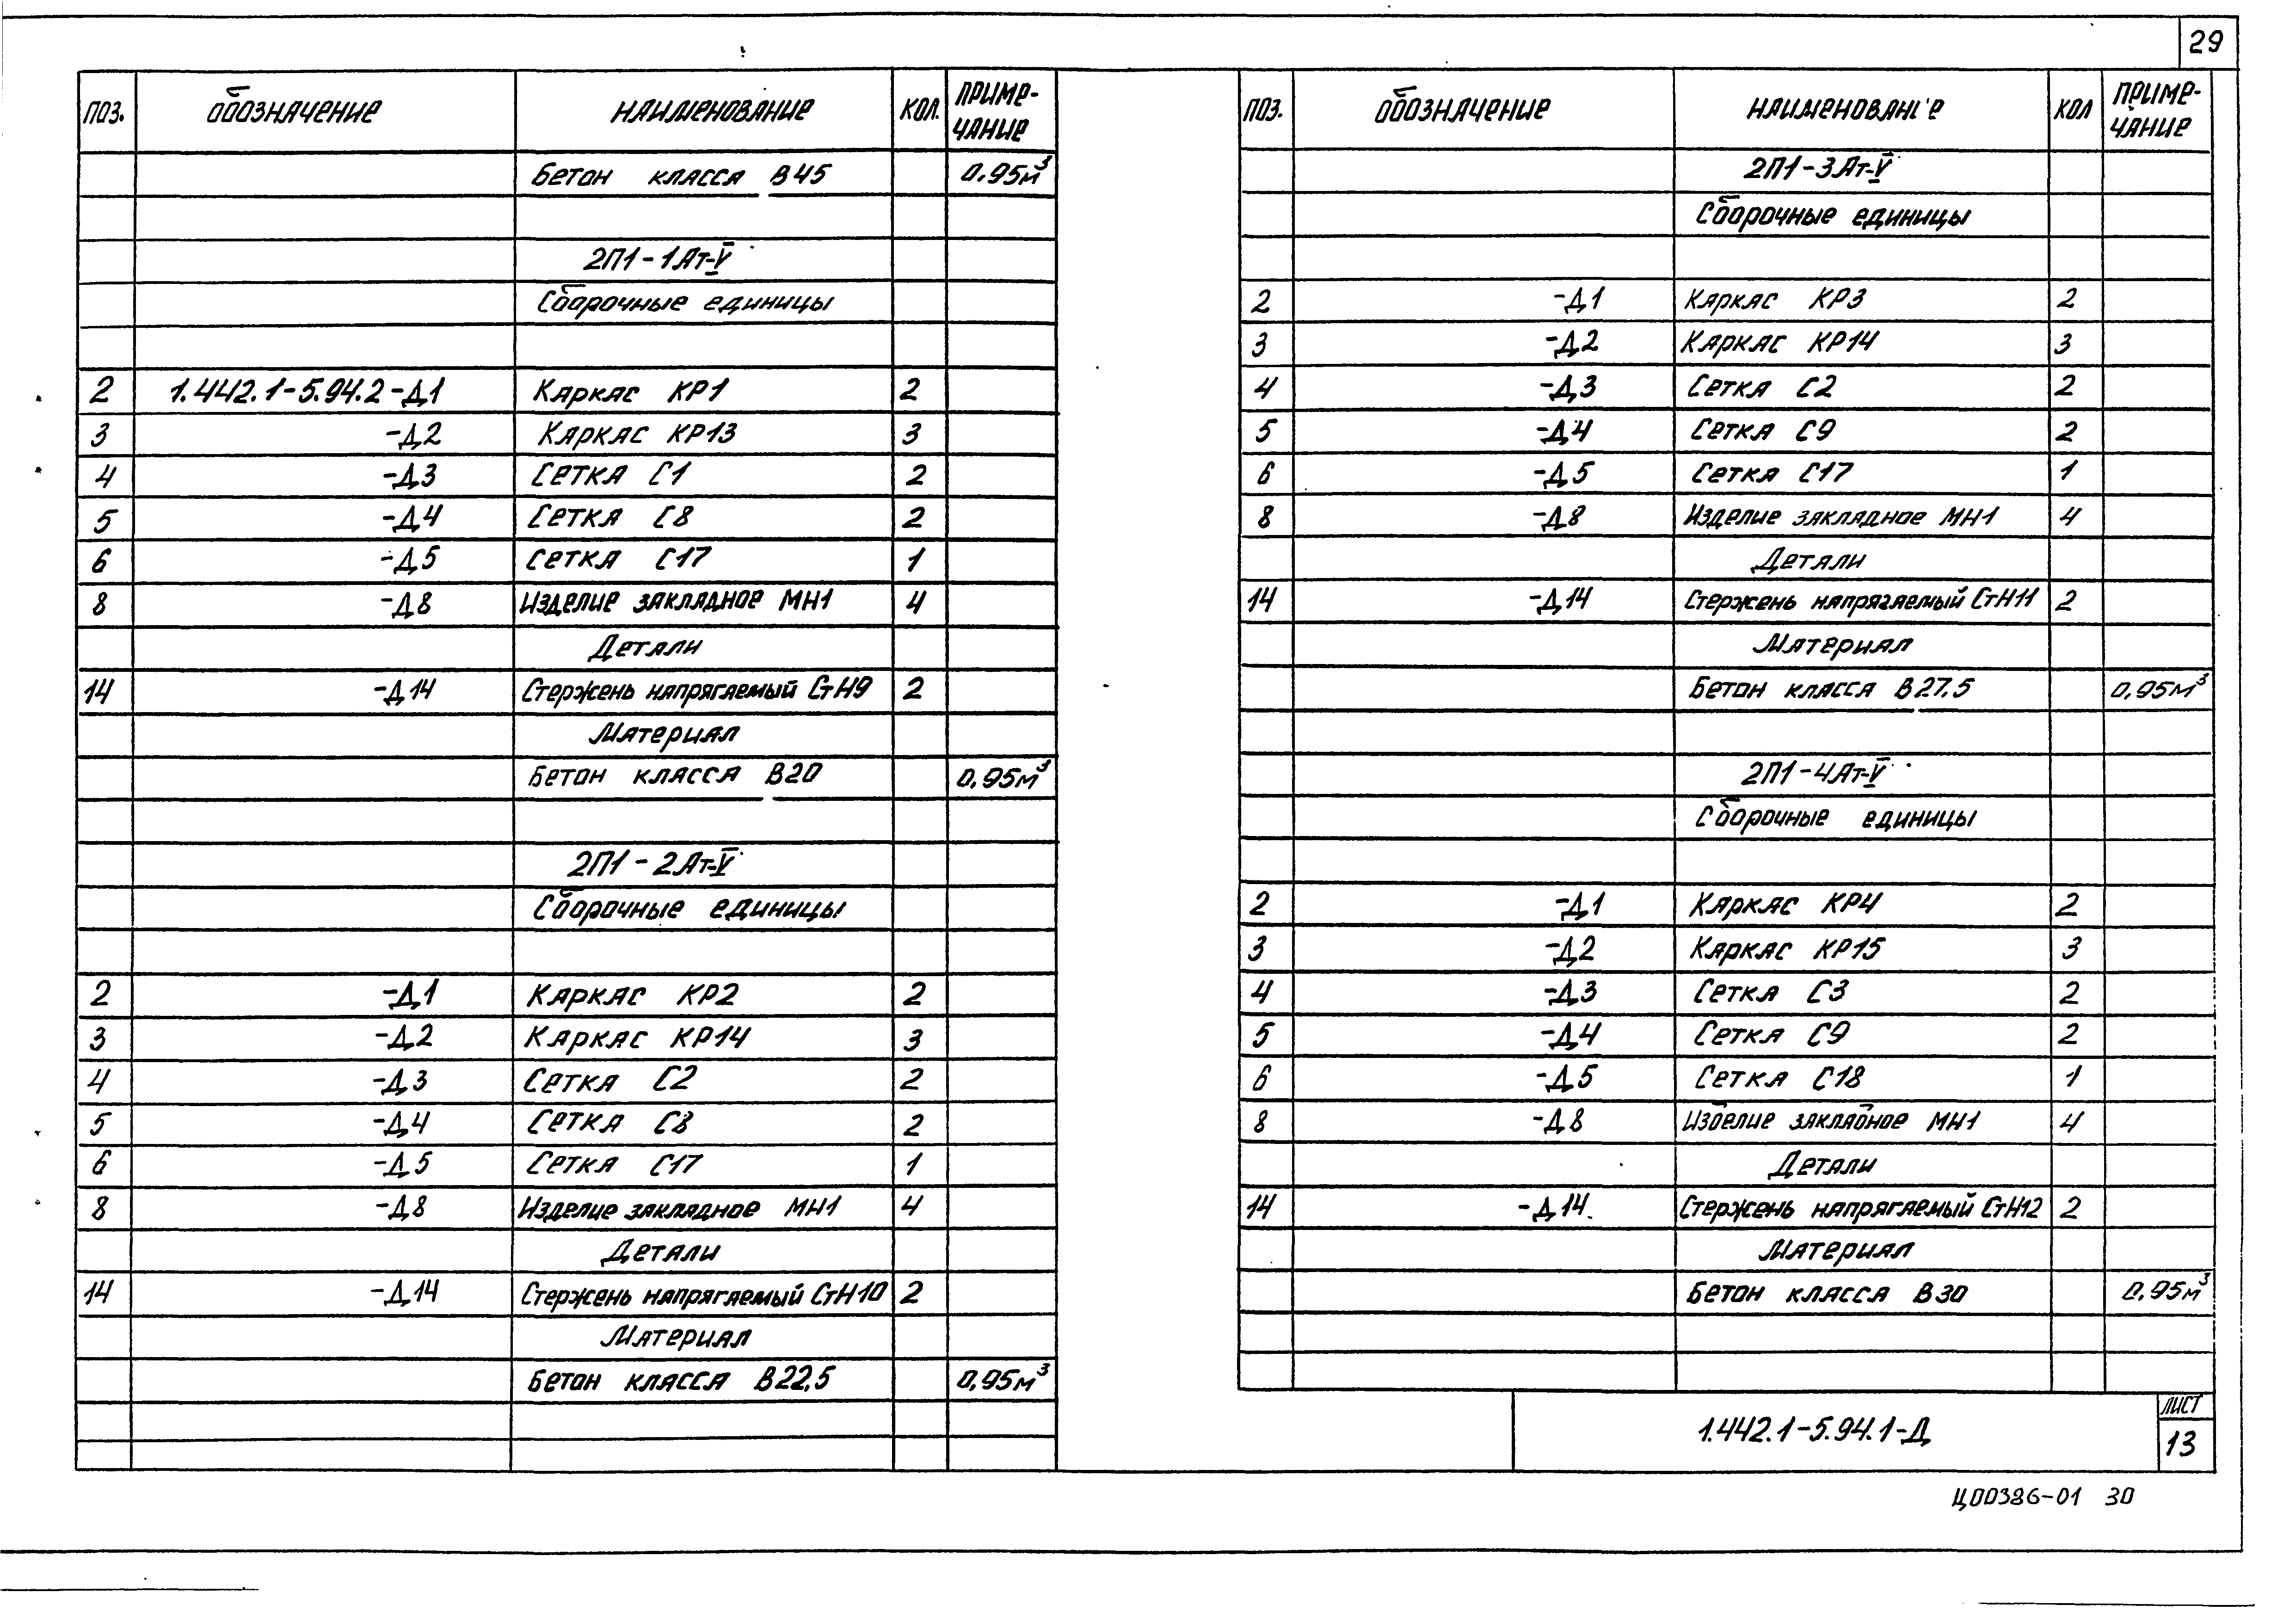 29
ПОЗ. ОБОЗНАЧЕНИЕ НАИМЕНОВАНИЕ КОЛ. ПРИМЕ-
ЧАНИЕ
Бетон класса В45 0,95м³
2П1-1Ат-V
Сборочные единицы
2 1.442.1-5.94.2-Д1 Каркас КР1 2
3 -Д2 Каркас КР13 3
4 -Д3 Сетка С1 2
5 -Д4 Сетка С8 2
6 -Д5 Сетка С17 1
8 -Д8 Изделие закладное МН1 4
Детали
14 -Д14 Стержень напрягаемый СтН9 2
Материал
Бетон класса В20 0,95м³
2П1-2Ат-V
Сборочные единицы
2 -Д1 Каркас КР2 2
3 -Д2 Каркас КР14 3
4 -Д3 Сетка С2 2
5 -Д4 Сетка С8 2
6 -Д5 Сетка С17 1
8 -Д8 Изделие закладное МН1 4
Детали
14 -Д14 Стержень напрягаемый СтН10 2
Материал
Бетон класса В22,5 0,95м³
ПОЗ. ОБОЗНАЧЕНИЕ НАИМЕНОВАНИЕ КОЛ ПРИМЕ-
ЧАНИЕ
2П1-3Ат-V
Сборочные единицы
2 -Д1 Каркас КР3 2
3 -Д2 Каркас КР14 3
4 -Д3 Сетка С2 2
5 -Д4 Сетка С9 2
6 -Д5 Сетка С17 1
8 -Д8 Изделие закладное МН1 4
Детали
14 -Д14 Стержень напрягаемый СтН11 2
Материал
Бетон класса В27.5 0,95м³
2П1-4Ат-V
Сборочные единицы
2 -Д1 Каркас КР4 2
3 -Д2 Каркас КР15 3
4 -Д3 Сетка С3 2
5 -Д4 Сетка С9 2
6 -Д5 Сетка С18 1
8 -Д8 Изделие закладное МН1 4
Детали
14 -Д14. Стержень напрягаемый СтН12 2
Материал
Бетон класса В30 0,95м³
1.442.1-5.94.1-Д
ЛИСТ
13
Ц00386-01 30